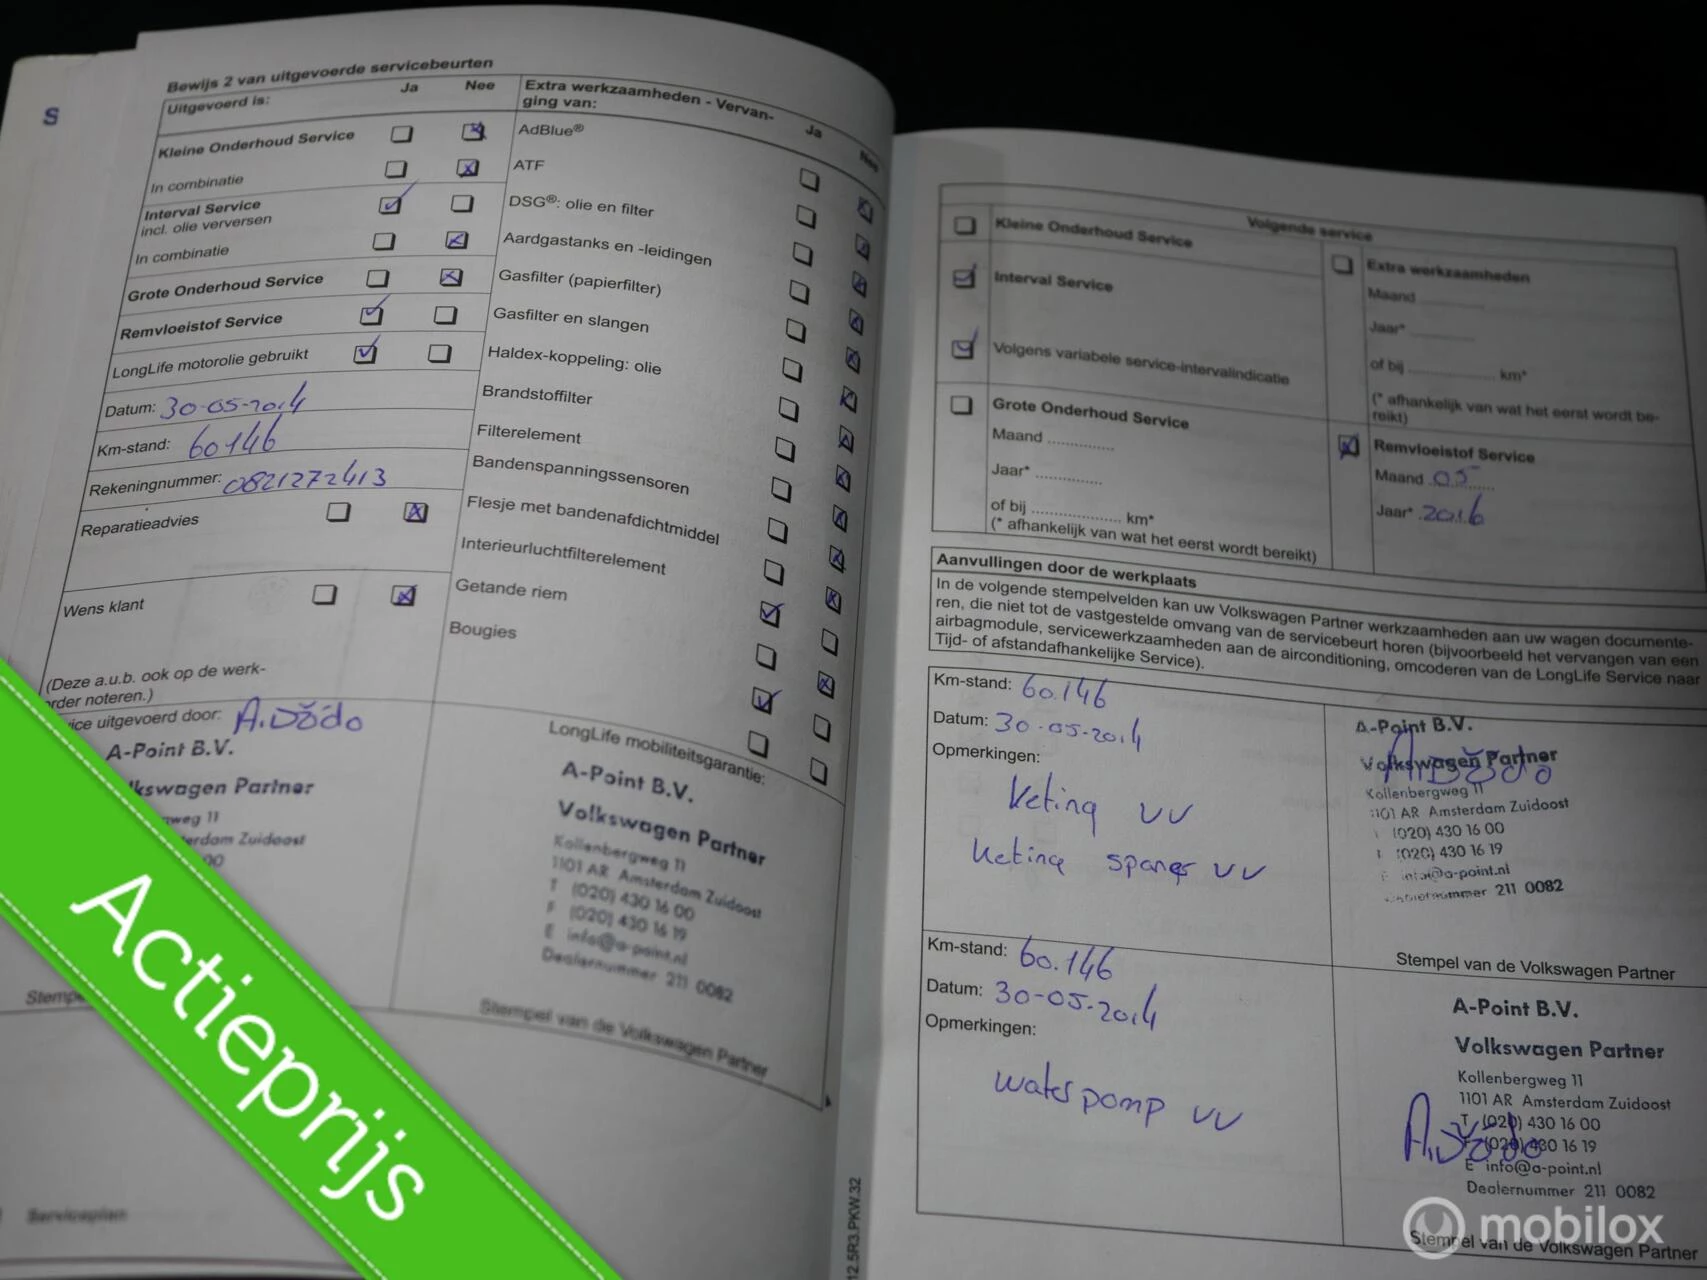 S
Bewijs 2 van uitgevoerde servicebeurten
Uitgevoerd is:
Ja Nee
Kleine Onderhoud Service
In combinatie
Interval Service
incl. olie verversen
In combinatie
Grote Onderhoud Service
Remvloeistof Service
LongLife motorolie gebruikt
Datum: 30-05-2014
Km-stand: 60146
Rekeningnummer: 0821272413
Reparatieadvies
Wens klant
(Deze a.u.b. ook op de werk-
order noteren.)
vice uitgevoerd door:
A-Point B.V.
lkswagen Partner
weg 11
terdam Zuidoost
00
Stempe
Serviceplan
Extra werkzaamheden - Vervan-
ging van:
Ja Nee
AdBlue®
ATF
DSG®: olie en filter
Aardgastanks en -leidingen
Gasfilter (papierfilter)
Gasfilter en slangen
Haldex-koppeling: olie
Brandstoffilter
Filterelement
Bandenspanningssensoren
Flesje met bandenafdichtmiddel
Interieurluchtfilterelement
Getande riem
Bougies
LongLife mobiliteitsgarantie:
A-Point B.V.
Volkswagen Partner
Kollenbergweg 11
1101 AR Amsterdam Zuidoost
T (020) 430 16 00
F (020) 430 16 19
E info@a-point.nl
Dealernummer 211 0082
Stempel van de Volkswagen Partner
Volgende service
Kleine Onderhoud Service
Interval Service
Volgens variabele service-intervalindicatie
Grote Onderhoud Service
Maand ..............
Jaar* ..............
of bij .................... km*
(* afhankelijk van wat het eerst wordt bereikt)
Extra werkzaamheden
Maand ..............
Jaar* ..............
of bij .................... km*
(* afhankelijk van wat het eerst wordt be-
reikt)
Remvloeistof Service
Maand 05
Jaar* 2016
Aanvullingen door de werkplaats
In de volgende stempelvelden kan uw Volkswagen Partner werkzaamheden aan uw wagen documente-
ren, die niet tot de vastgestelde omvang van de servicebeurt horen (bijvoorbeeld het vervangen van een
airbagmodule, servicewerkzaamheden aan de airconditioning, omcoderen van de LongLife Service naar
Tijd- of afstandafhankelijke Service).
Km-stand: 60.146
Datum: 30-05-2014
Opmerkingen:
keting vv
keting vv
A-Point B.V.
Volkswagen Partner
Kollenbergweg 11
1101 AR Amsterdam Zuidoost
(020) 430 16 00
(020) 430 16 19
info@a-point.nl
211 0082
Stempel van de Volkswagen Partner
Km-stand: 60.146
Datum: 30-05-2014
Opmerkingen:
waterpomp vv
A-Point B.V.
Volkswagen Partner
Kollenbergweg 11
1101 AR Amsterdam Zuidoost
T (020) 430 16 00
F (020) 430 16 19
E info@a-point.nl
Dealernummer 211 0082
Stempel van de Volkswagen Partner
12.5R3.PKW.32
Actieprijs
mobilox